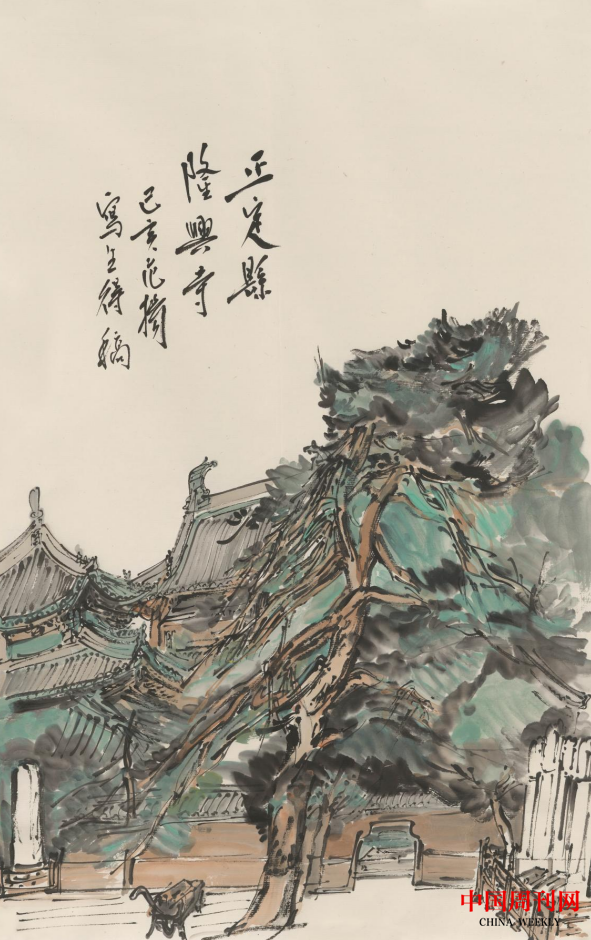 正定縣
隆興寺
己亥范揚
寫生得稿
中国周刊网
CHINA WEEKLY